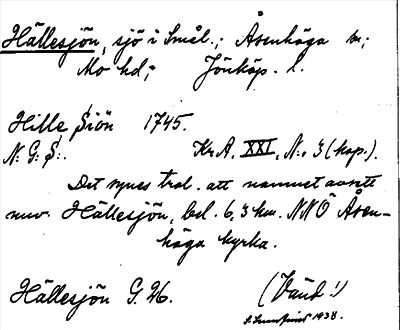 Hällesjön, sjö i Smål.; Åsenhöga sn;
Mo hd; Jönköp. l.
Hille Siön 1745.
N: G: S:. Kr.A. XXI, N:o 3 (kop.).
Det synes trol. att namnet avsete
nuv. Hällesjön, bel. 6,3 km. NNÖ Åsen-
höga kyrka.
Hällesjön G. 26. (Vänd!)
1938.